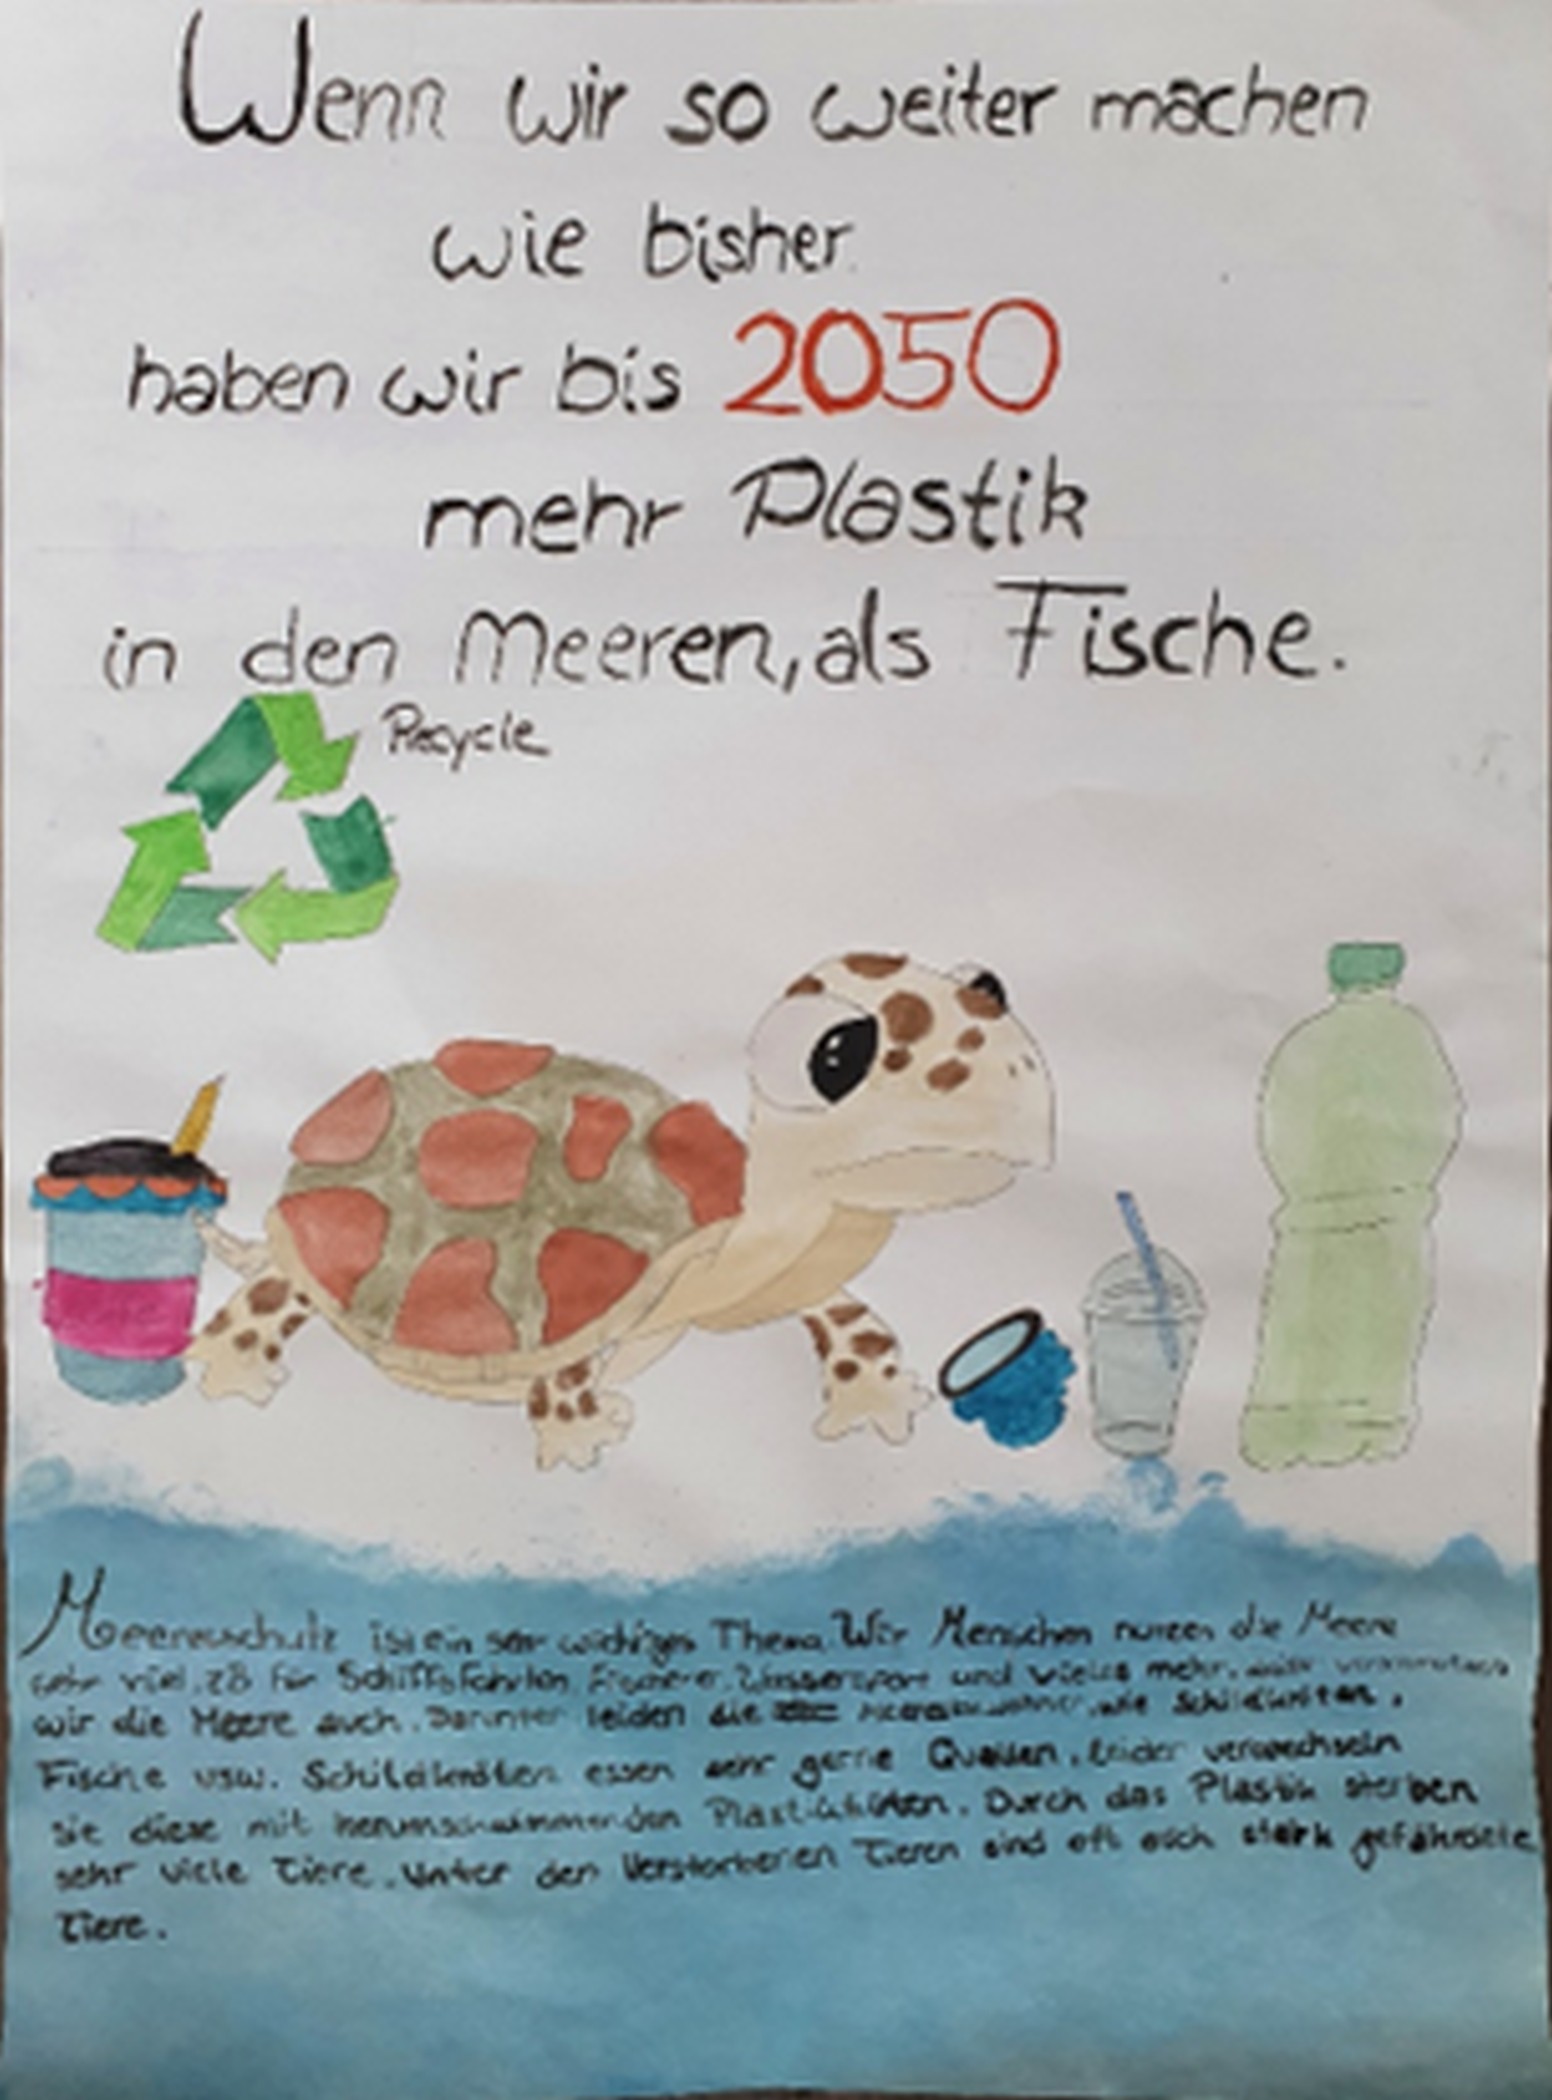 Wenn wir so weiter machen
wie bisher
haben wir bis 2050
mehr Plastik
in den Meeren, als Fische.
Recycle
Meeresschutz ist ein ser wichtiges Thema. Wir Menschen nutzen die Meere
sehr viel. zB für Schiffsfahrten, Fischerei, Wassersport und vieles mehr.
wir die Meere auch. Darunter leiden die Meeresbewohner, wie Schildkröten,
Fische usw. Schildkröten essen sehr gerne Quallen. Leider verwechseln
sie diese mit herumschwimmenden Plastiktüten. Durch das Plastik sterben
sehr viele Tiere. Unter den Verstorbenen Tieren sind oft auch stark gefährdete
Tiere.